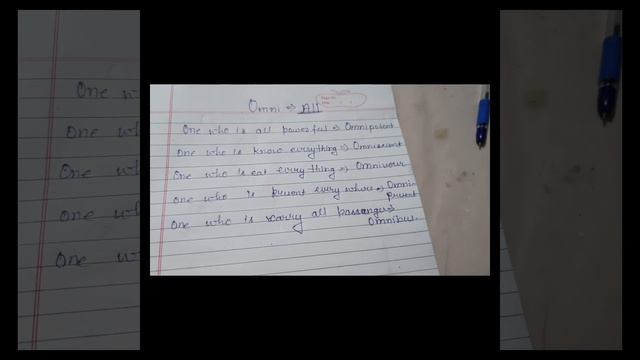 Omni → All
One who is all powerful → Omnipotent
One who is know everything → Omniscient
One who is eat everything → Omnivour
One who is present every where → Omni-
present
One who is carry all passanger →
Omnibus.
One w
One wh
One wh
One wh
One w